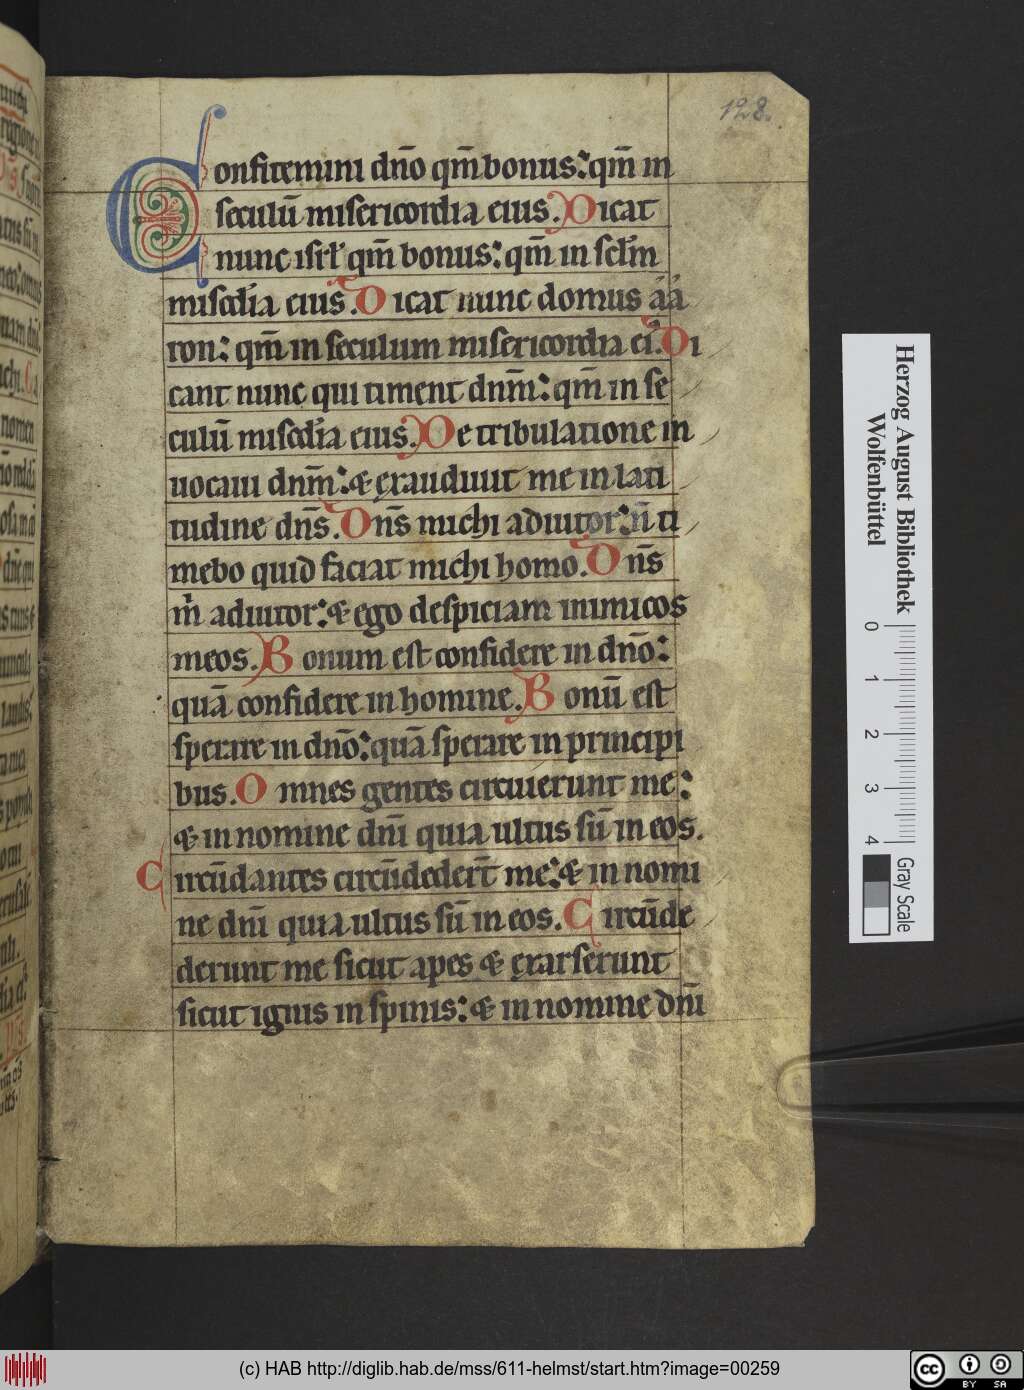 128.
Confitemini dn̄o qm̄ bonus: qm̄ in
seculū misericordia eius. Dicat
nunc isrł qm̄ bonus: qm̄ in scłm
miscd̄ia eius. Dicat nunc domus aa
ron: qm̄ in seculum misericordia ei᷒. Di
cant nunc qui timent dnm̄: qm̄ in se
culū miscd̄ia eius. De tribulatione in
uocaui dnm̄: & ęxaudiuit me in lati
tudine dn̄s. Dn̄s michi adiutor: n̄ ti
mebo quid faciat michi homo. Dn̄s
m̄ adiutor: & ego despiciam inimicos
meos. Bonum est confidere in dn̄o:
quā confidere in homine. Bonū est
sperare in dn̄o: quā sperare in principi
bus. Omnes gentes circuierunt me:
& in nomine dn̄i quia ultus sū in eos.
Circūdantes circūdeder̄t me: & in nomi
ne dn̄i quia ultus sū in eos. Circūde
derunt me sicut apes & ęxarserunt
sicut ignis in spinis: & in nomine dn̄i
Herzog August Bibliothek
Wolfenbüttel
0 1 2 3 4
Gray Scale
(c) HAB http://diglib.hab.de/mss/611-helmst/start.htm?image=00259
cc BY SA